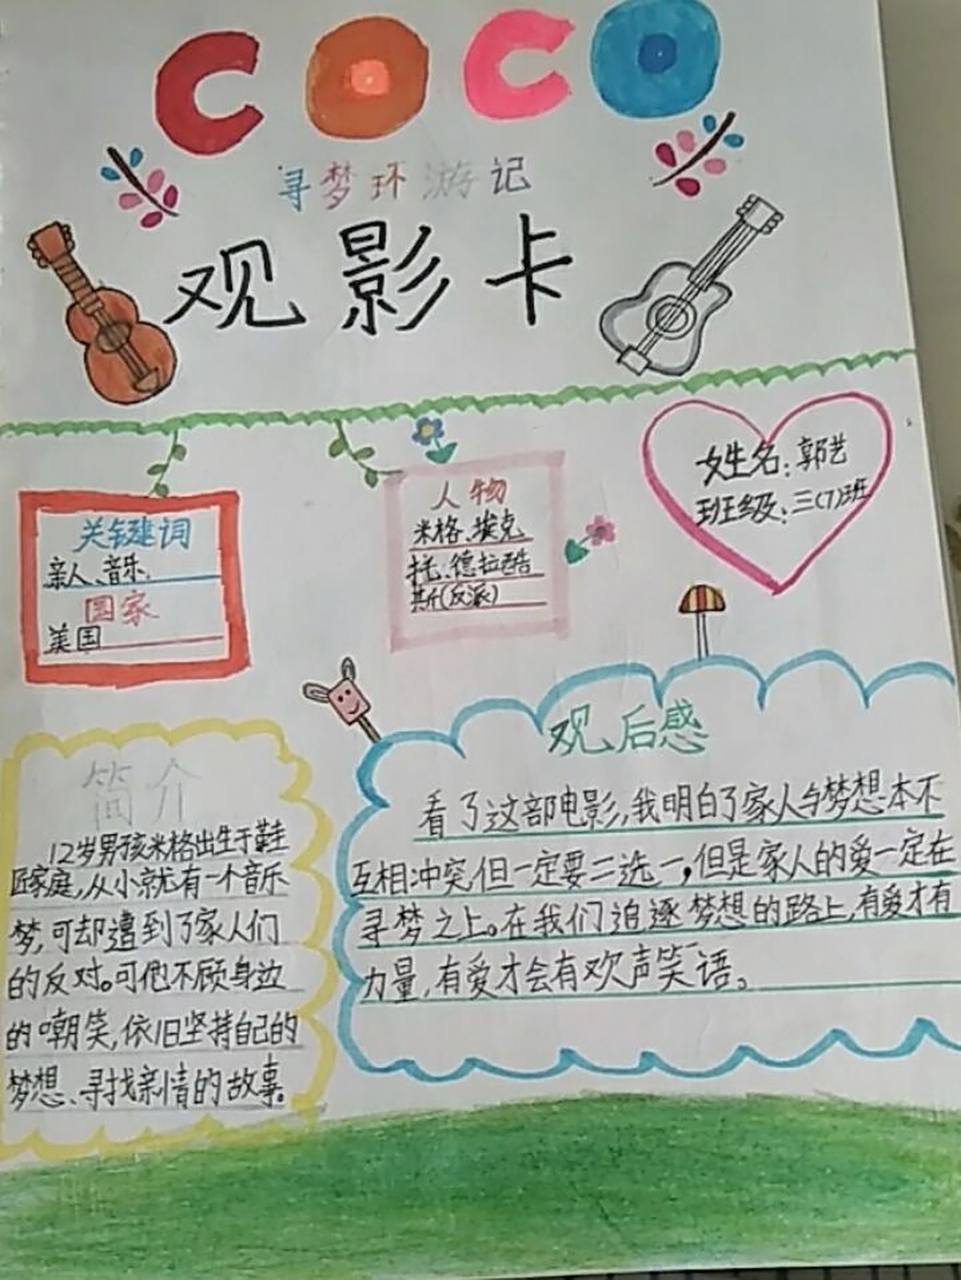 COCO
寻梦环游记
观影卡
姓名:郭艺
班级:三(7)班
关键词
亲人、音乐
国家
美国
人物
米格、埃克
托、德拉酷
斯(反派)
简介
12岁男孩米格出生于鞋
匠家庭,从小就有一个音乐
梦,可却遭到了家人们
的反对。可他不顾身边
的嘲笑,依旧坚持自己的
梦想、寻找亲情的故事。
观后感
看了这部电影,我明白了家人与梦想本不
互相冲突,但一定要二选一,但是家人的爱一定在
寻梦之上。在我们追逐梦想的路上,有爱才有
力量,有爱才会有欢声笑语。